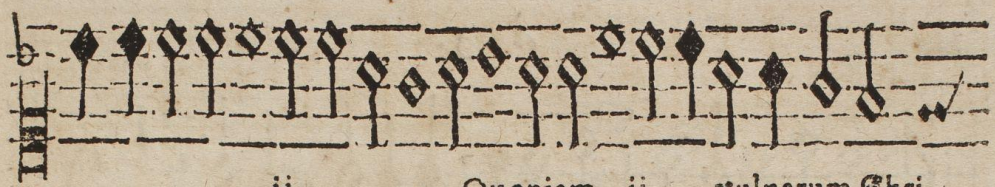 ij Quoniam ij vulnerum Chri